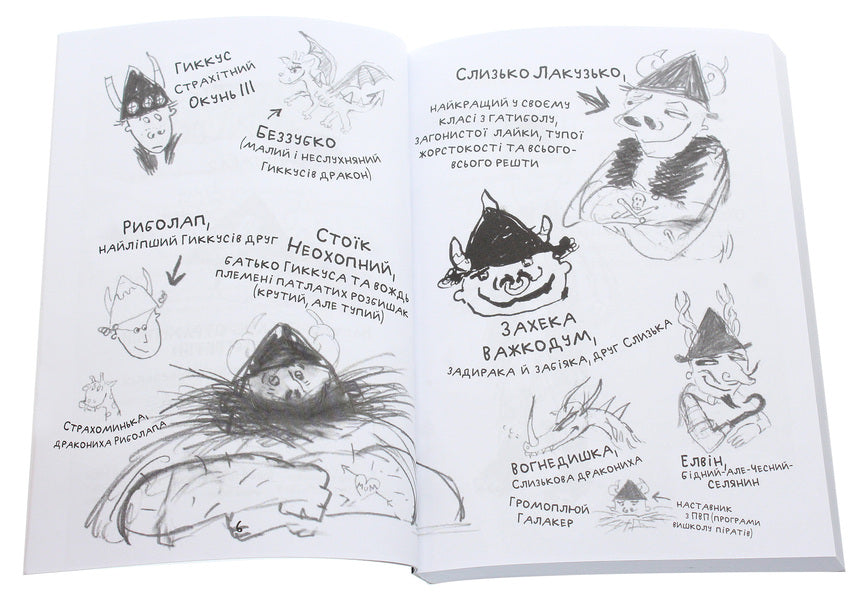 Гиккус
Страхітний
Окунь III
Беззубко
(малий і неслухняний
Гиккусів дракон)
Риболап,
найліпший Гиккусів друг
Стоїк
Неохопний,
батько Гиккуса та вождь
племені патлатих розбишак
(крутий, але тупий)
Страхоминька,
дракониха Риболапа
МОМ
6
Слизько Лакузько,
найкращий у своєму
класі з гатиболу,
загонистої лайки, тупої
жорстокості та всього-
всього решти
Захека
Важкодум,
задирака й забіяка, друг Слизька
Вогнедишка,
Слизькова дракониха
Елвін,
бідний-але-чесний-
селянин
Громоплюй
Галакер
наставник
з ПВП (програми
вишколу піратів)